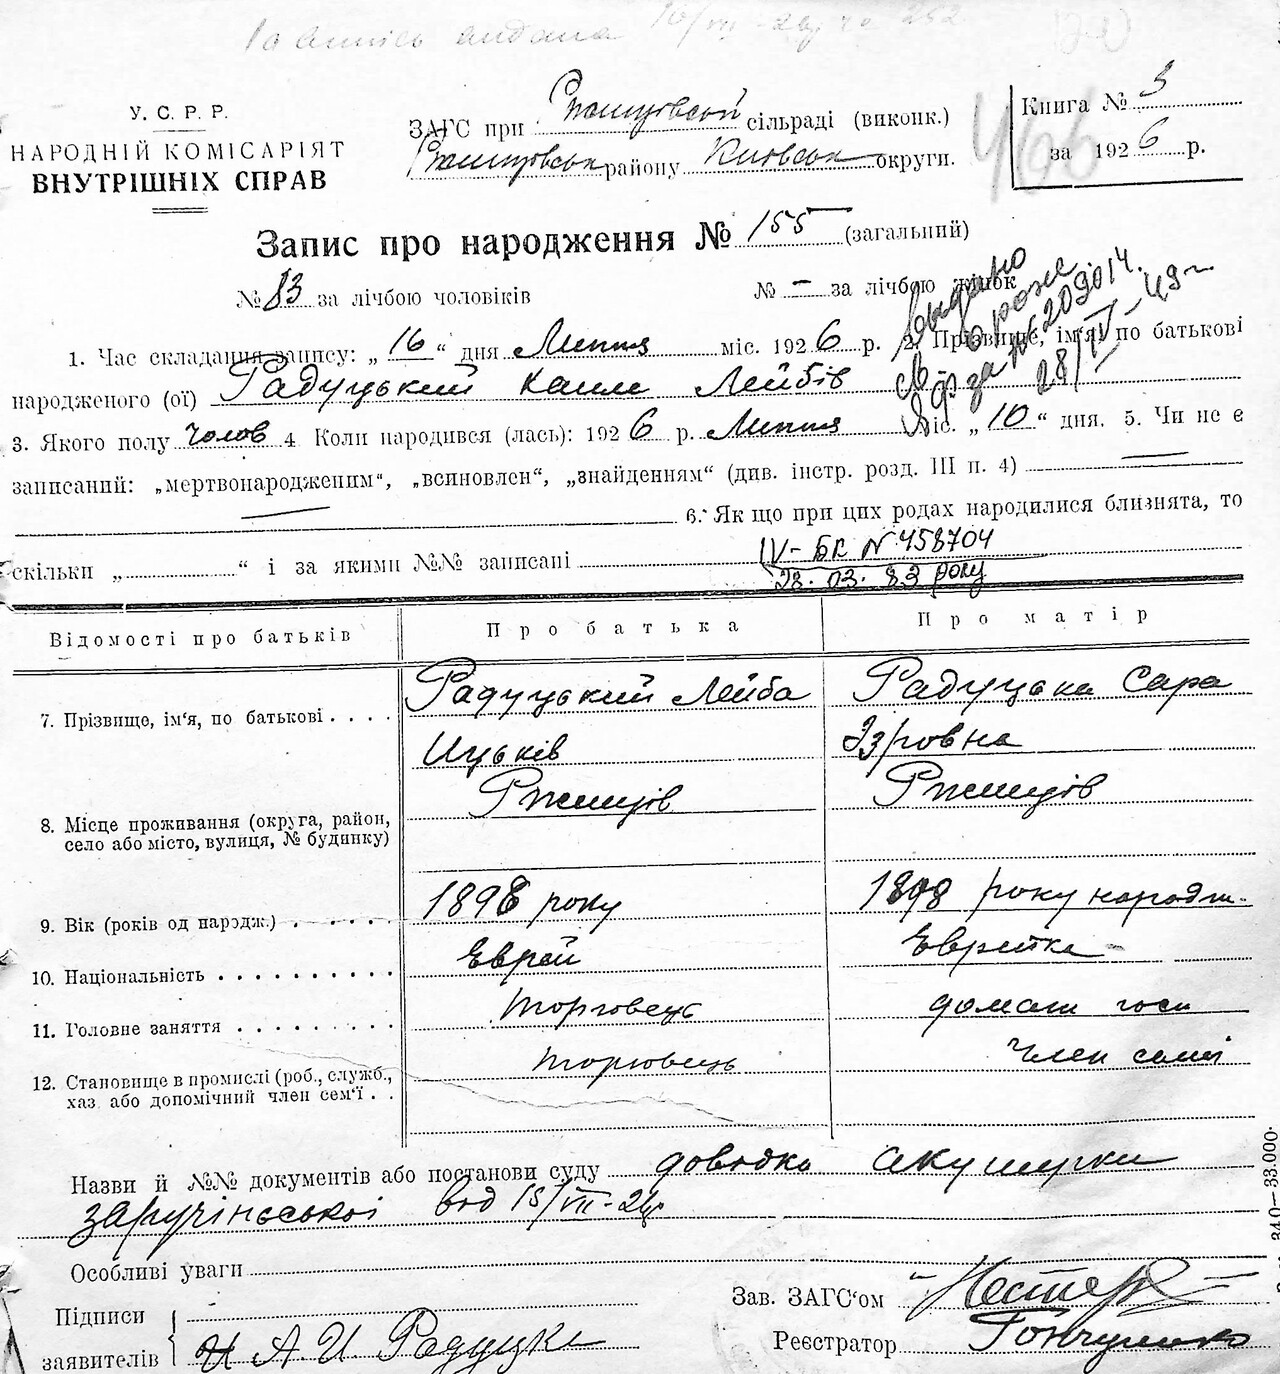 виписъ видана 16/VII-26 р. № 252
У. С. Р. Р.
НАРОДНІЙ КОМІСАРІЯТ
ВНУТРІШНІХ СПРАВ
ЗАГС при Ржищовській сільраді (виконк.)
Ржищовськ району Київськ округи.
Книга № 3
за 1926 р.
466
Запис про народження № 155 (загальний)
№ 83 за лічбою чоловіків № – за лічбою жінок
видано
28/IV-49 г.
1. Час складання запису: „16“ дня Липня міс. 1926 р. 2. Прізвище, ім'я, по батькові
народженого (ої) Радуцький Лейбів
3. Якого полу чолов 4 Коли народився (лась): 1926 р. Липня міс. „10“ дня. 5. Чи не є
записаний: „мертвонародженим“, „всиновлен“, „знайденням“ (див. інстр. розд. III п. 4)
6. Як що при цих родах народилися близнята, то
скільки „ “ і за якими №№ записані
IV-БК № 458704
28.03.83 року
Відомості про батьків Про батька Про матір
7. Прізвище, ім'я, по батькові . . . . Радуцький Лейба Ицьків Радуцька Сара Ізровна
8. Місце проживання (округа, район, село або місто, вулиця, № будинку) Ржищів Ржищів
9. Вік (років од народж.) . . . . . 1898 року 1898 року народж.
10. Національність . . . . . . . . . . Еврей Еврейка
11. Головне заняття . . . . . . . . . Торговець домашн госп
12. Становище в промислі (роб., служб., хаз. або допомічний член сем'ї . . Торговець Член семї
Назви й №№ документів або постанови суду довідка акушерки
від 15/VII-26р
Особливі уваги
Підписи
заявителів И А.И Радуцка
Зав. ЗАГС'ом Нестер
Реєстратор Гончаренко
340—33.000.